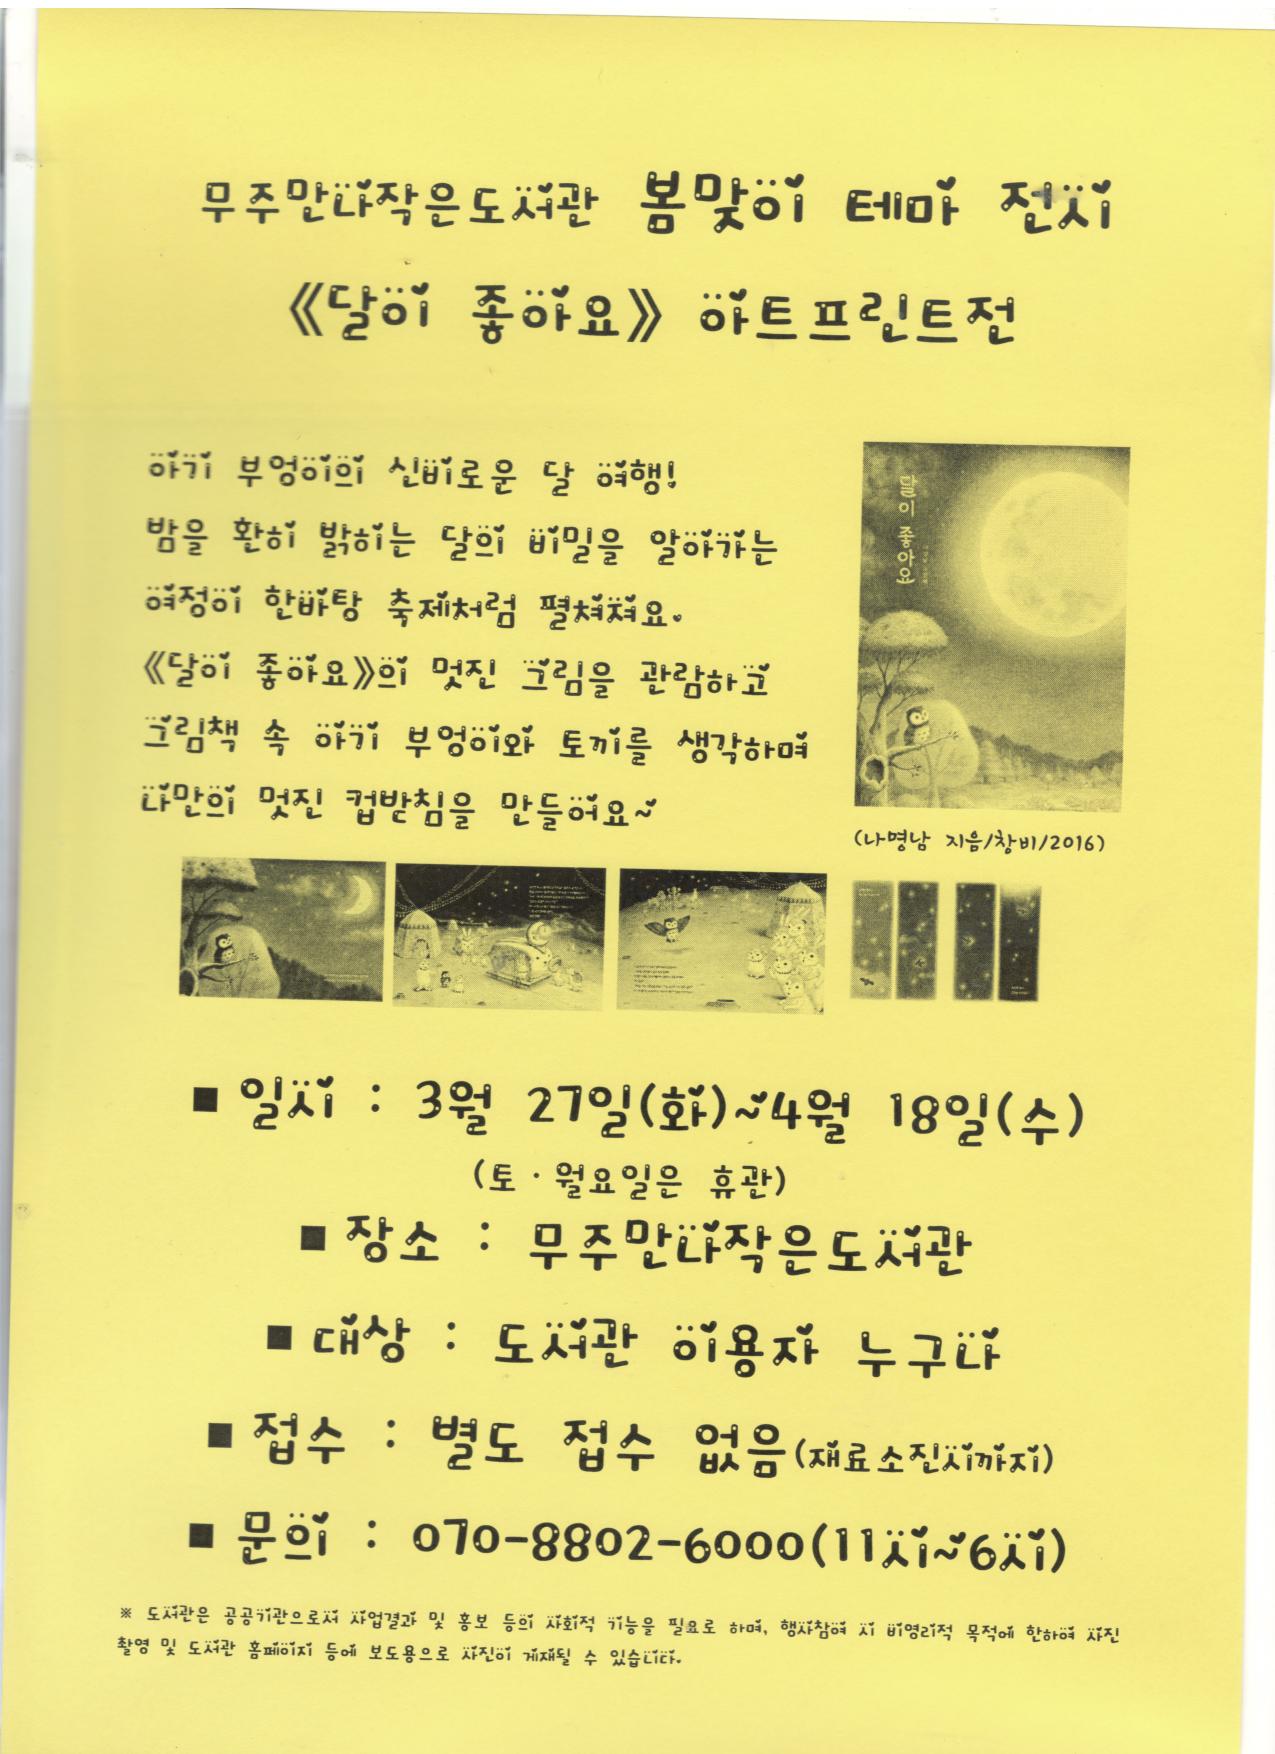 무주만나작은도서관 봄맞이 테마 전시
《달이 좋아요》 아트프린트전
아기 부엉이의 신비로운 달 여행!
밤을 환히 밝히는 달의 비밀을 알아가는
여정이 한바탕 축제처럼 펼쳐져요.
《달이 좋아요》의 멋진 그림을 관람하고
그림책 속 아기 부엉이와 토끼를 생각하며
나만의 멋진 컵받침을 만들어요~
달이 좋아요
(나명남 지음/창비/2016)
■ 일시 : 3월 27일(화)~4월 18일(수)
(토·월요일은 휴관)
■ 장소 : 무주만나작은도서관
■ 대상 : 도서관 이용자 누구나
■ 접수 : 별도 접수 없음(재료소진시까지)
■ 문의 : 070-8802-6000(11시~6시)
※ 도서관은 공공기관으로서 사업결과 및 홍보 등의 사회적 기능을 필요로 하며, 행사참여 시 비영리적 목적에 한하여 사진
촬영 및 도서관 홈페이지 등에 보도용으로 사진이 게재될 수 있습니다.